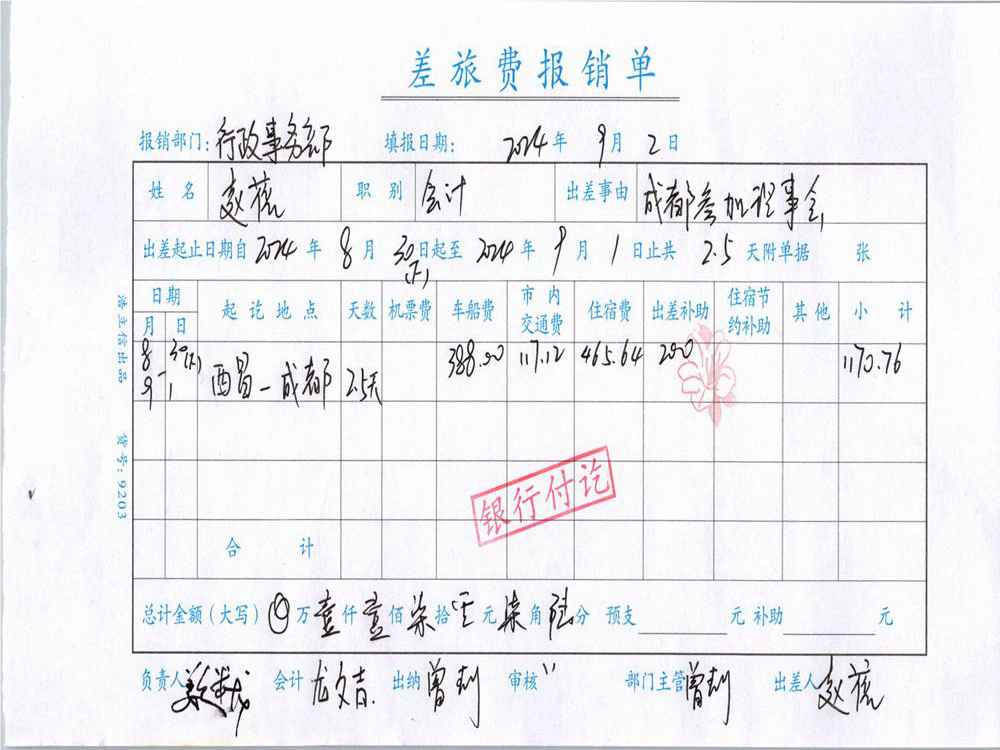 差旅费报销单
报销部门：行政事务部 填报日期： 2024 年 9 月 2 日
姓名 赵 职别 会计 出差事由 成都参加理事会
出差起止日期自 2024 年 8 月 30 日起至 2024 年 9 月 1 日止共 2.5 天附单据 张
(下)
日期 起讫地点 天数 机票费 车船费 市内交通费 住宿费 出差补助 住宿节约补助 其他 小计
月 日
8 30(下) - 9 1 西昌-成都 2.5天 388.00 117.12 465.64 200 1170.76
银行付讫
合计
总计金额（大写） 万 壹 仟 壹 佰 柒 拾 元 柒 角 陆 分 预支 元 补助 元
负责人 会计 龙文吉 出纳 曾利 审核 〃 部门主管 曾利 出差人 赵
浩立信出品 货号：9203